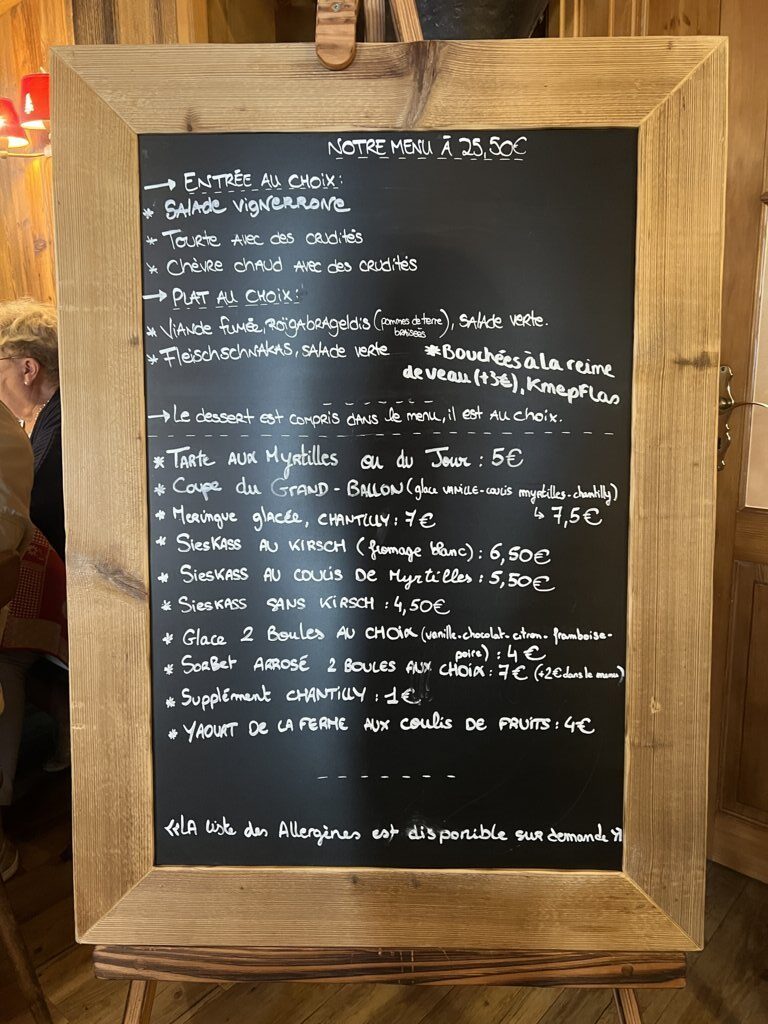 NOTRE MENU À 25,50€
→ ENTRÉE AU CHOIX:
* SALADE VIGNERRONE
* TOURTE AVEC DES CRUDITÉS
* CHÈVRE CHAUD AVEC DES CRUDITÉS
→ PLAT AU CHOIX:
* VIANDE FUMÉE, ROÏGABRAGELDIS (pommes de terre braisées), SALADE VERTE.
* FLEISCHSCHNAKAS, SALADE VERTE
* Bouchées à la reine
de veau (+3€), KmepFlas
→ LE DESSERT EST COMPRIS DANS le MENU, il EST AU CHOIX.
* TARTE AUX MyRTILLES ou du JOUR : 5€
* COUPE du GRAND-BALLON (glace VANILLE-COULIS myrtilles-chantilly)
↳ 7,5€
* MERINGUE glacée, CHANTILLY : 7€
* SIESKASS AU KIRSCH (fromage blanc) : 6,50€
* SIESKASS AU COULIS DE MyRTILLES : 5,50€
* SIESKASS SANS KIRSCH : 4,50€
* GLACE 2 BOULES AU CHOIX (vanille-chocolat-citron-framboise-
poire) : 4€
* SORBET ARROSÉ 2 BOULES AUX CHOIX : 7€ (+2€ dans le menu)
* Supplément CHANTILLY : 1€
* YAOURT DE LA FERME AUX COULIS DE FRUITS : 4€
«LA liste des Allergènes est disponible sur demande»